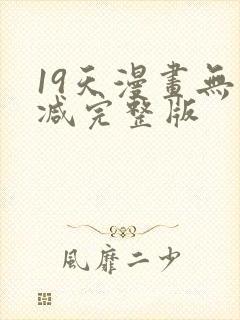 19天漫畫無
减完整版
風靡二少